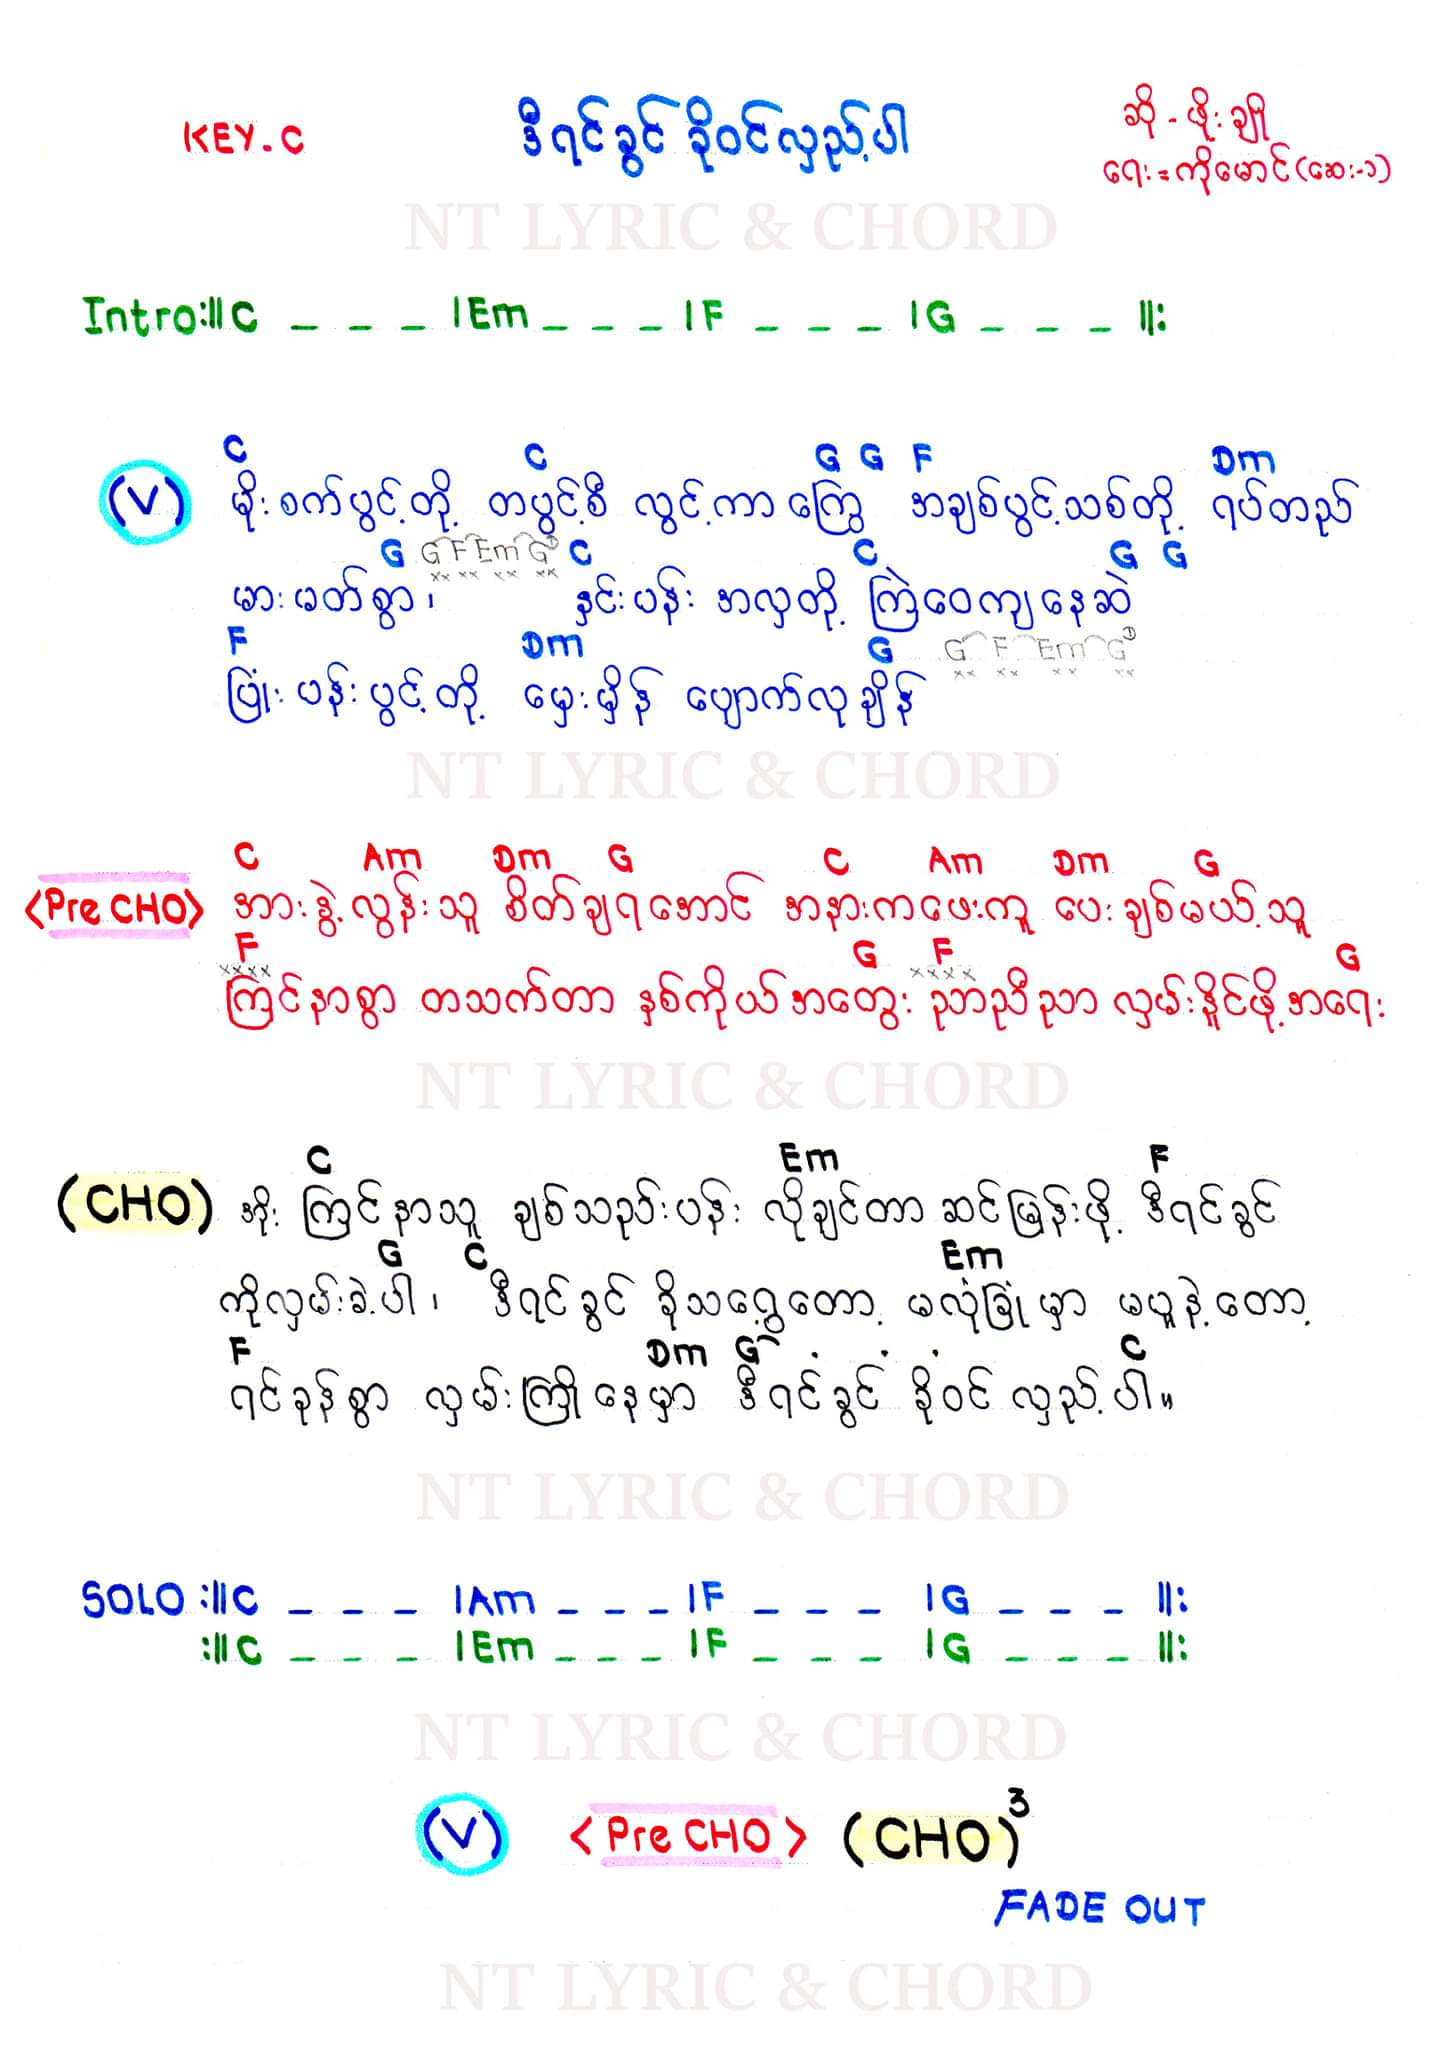 KEY.C
ဒီရင်ခွင် ခိုဝင်လှည့်ပါ
ဆို - ဖိုးချို
ရေး = ကိုမောင်(ဆေး-၁)
NT LYRIC & CHORD
Intro:||C _ _ _ |Em _ _ _ |F _ _ _ |G _ _ _ ||:
C C G G F Dm
(V) မိုးစက်ပွင့်တို့ တပွင့်စီ လွင့်ကာကြွေ အချစ်ပွင့်သစ်တို့ ရပ်တည်
G G F Em G C C G G
မားမတ်စွာ၊ နှင်းပန်း အလှတို့ ကြဲဝေကျနေဆဲ
F Dm G G F Em G
ပြုံးပန်းပွင့်တို့ မှေးမှိန် ပျောက်လုချိန်
NT LYRIC & CHORD
C Am Dm G C Am Dm G
<Pre CHO> အားနွဲ့လွန်းသူ စိတ်ချရအောင် အနားကဖေးကူ ပေးချစ်မယ့်သူ
F G F G
xxxx xxxx
ကြင်နာစွာ တသက်တာ နှစ်ကိုယ်အတွေး ညာညီညာ လှမ်းနိူင်ဖို့အရေး
NT LYRIC & CHORD
C Em F
(CHO) အိုး ကြင်နာသူ ချစ်သည်းပန်း လိုချင်တာ ဆင်မြန်းဖို့ ဒီရင်ခွင်
G C Em
ကိုလှမ်းခဲ့ပါ၊ ဒီရင်ခွင် ခိုသရွေ့တော့ မလုံခြုံမှာ မပူနဲ့တော့
F Dm G C
ရင်ခုန်စွာ လှမ်းကြိုနေမှာ ဒီရင်ခွင် ခိုဝင်လှည့်ပါ။
NT LYRIC & CHORD
SOLO :||C _ _ _ |Am _ _ _ |F _ _ _ |G _ _ _ ||:
:||C _ _ _ |Em _ _ _ |F _ _ _ |G _ _ _ ||:
NT LYRIC & CHORD
(V) <Pre CHO> (CHO)³
FADE OUT
NT LYRIC & CHORD